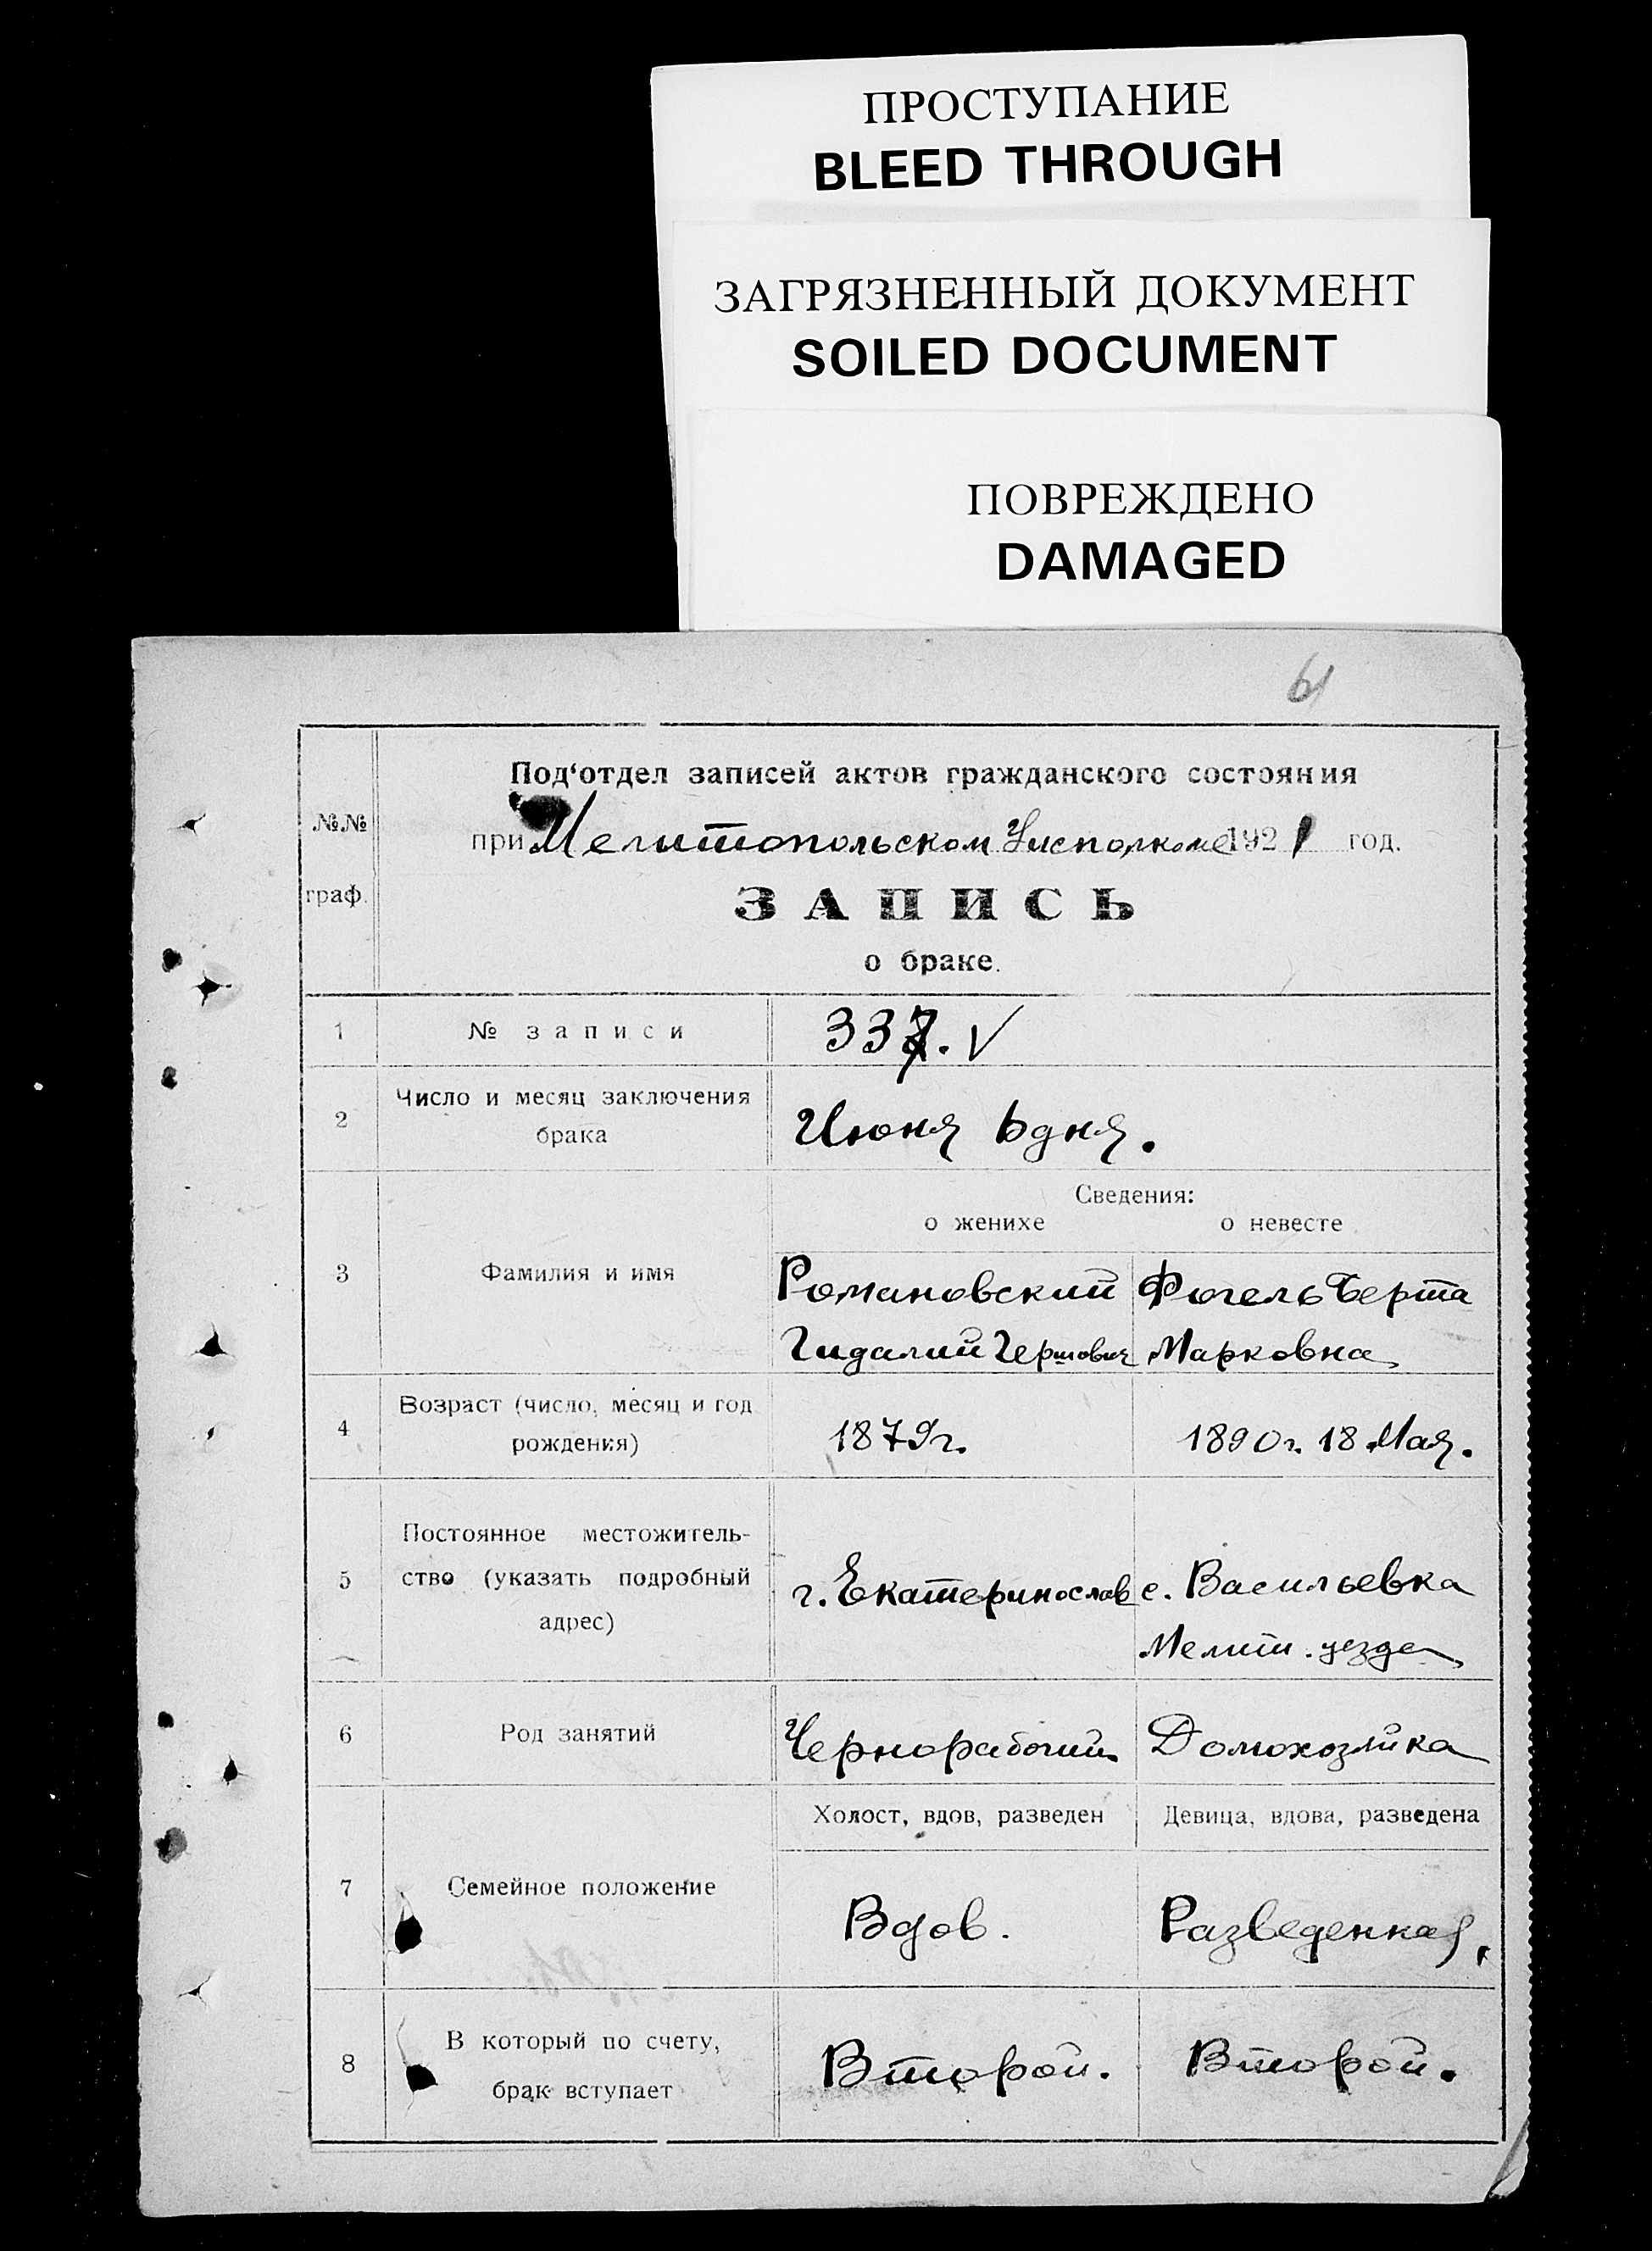 ПРОСТУПАНИЕ
BLEED THROUGH
ЗАГРЯЗНЕННЫЙ ДОКУМЕНТ
SOILED DOCUMENT
ПОВРЕЖДЕНО
DAMAGED
61
№№
граф.
Под‘отдел записей актов гражданского состояния
при Мелитопольском Уисполкоме 1921 год.
ЗАПИСЬ
о браке.
1 № записи 337. V
2 Число и месяц заключения
брака
Июня 6 дня.
Сведения:
о женихе о невесте
3 Фамилия и имя
Романовский Фогель Берта
Гидалий Гершович Марковна
4 Возраст (число, месяц и год
рождения)
1879 г. 1890 г. 18 Мая.
5 Постоянное местожитель-
ство (указать подробный
адрес)
г. Екатеринослав с. Васильевка
Мелит. уезда
6 Род занятий Чернорабочий Домохозяйка
Холост, вдов, разведен Девица, вдова, разведена
7 Семейное положение Вдов. Разведенная.
8 В который по счету,
брак вступает
Второй. Второй.